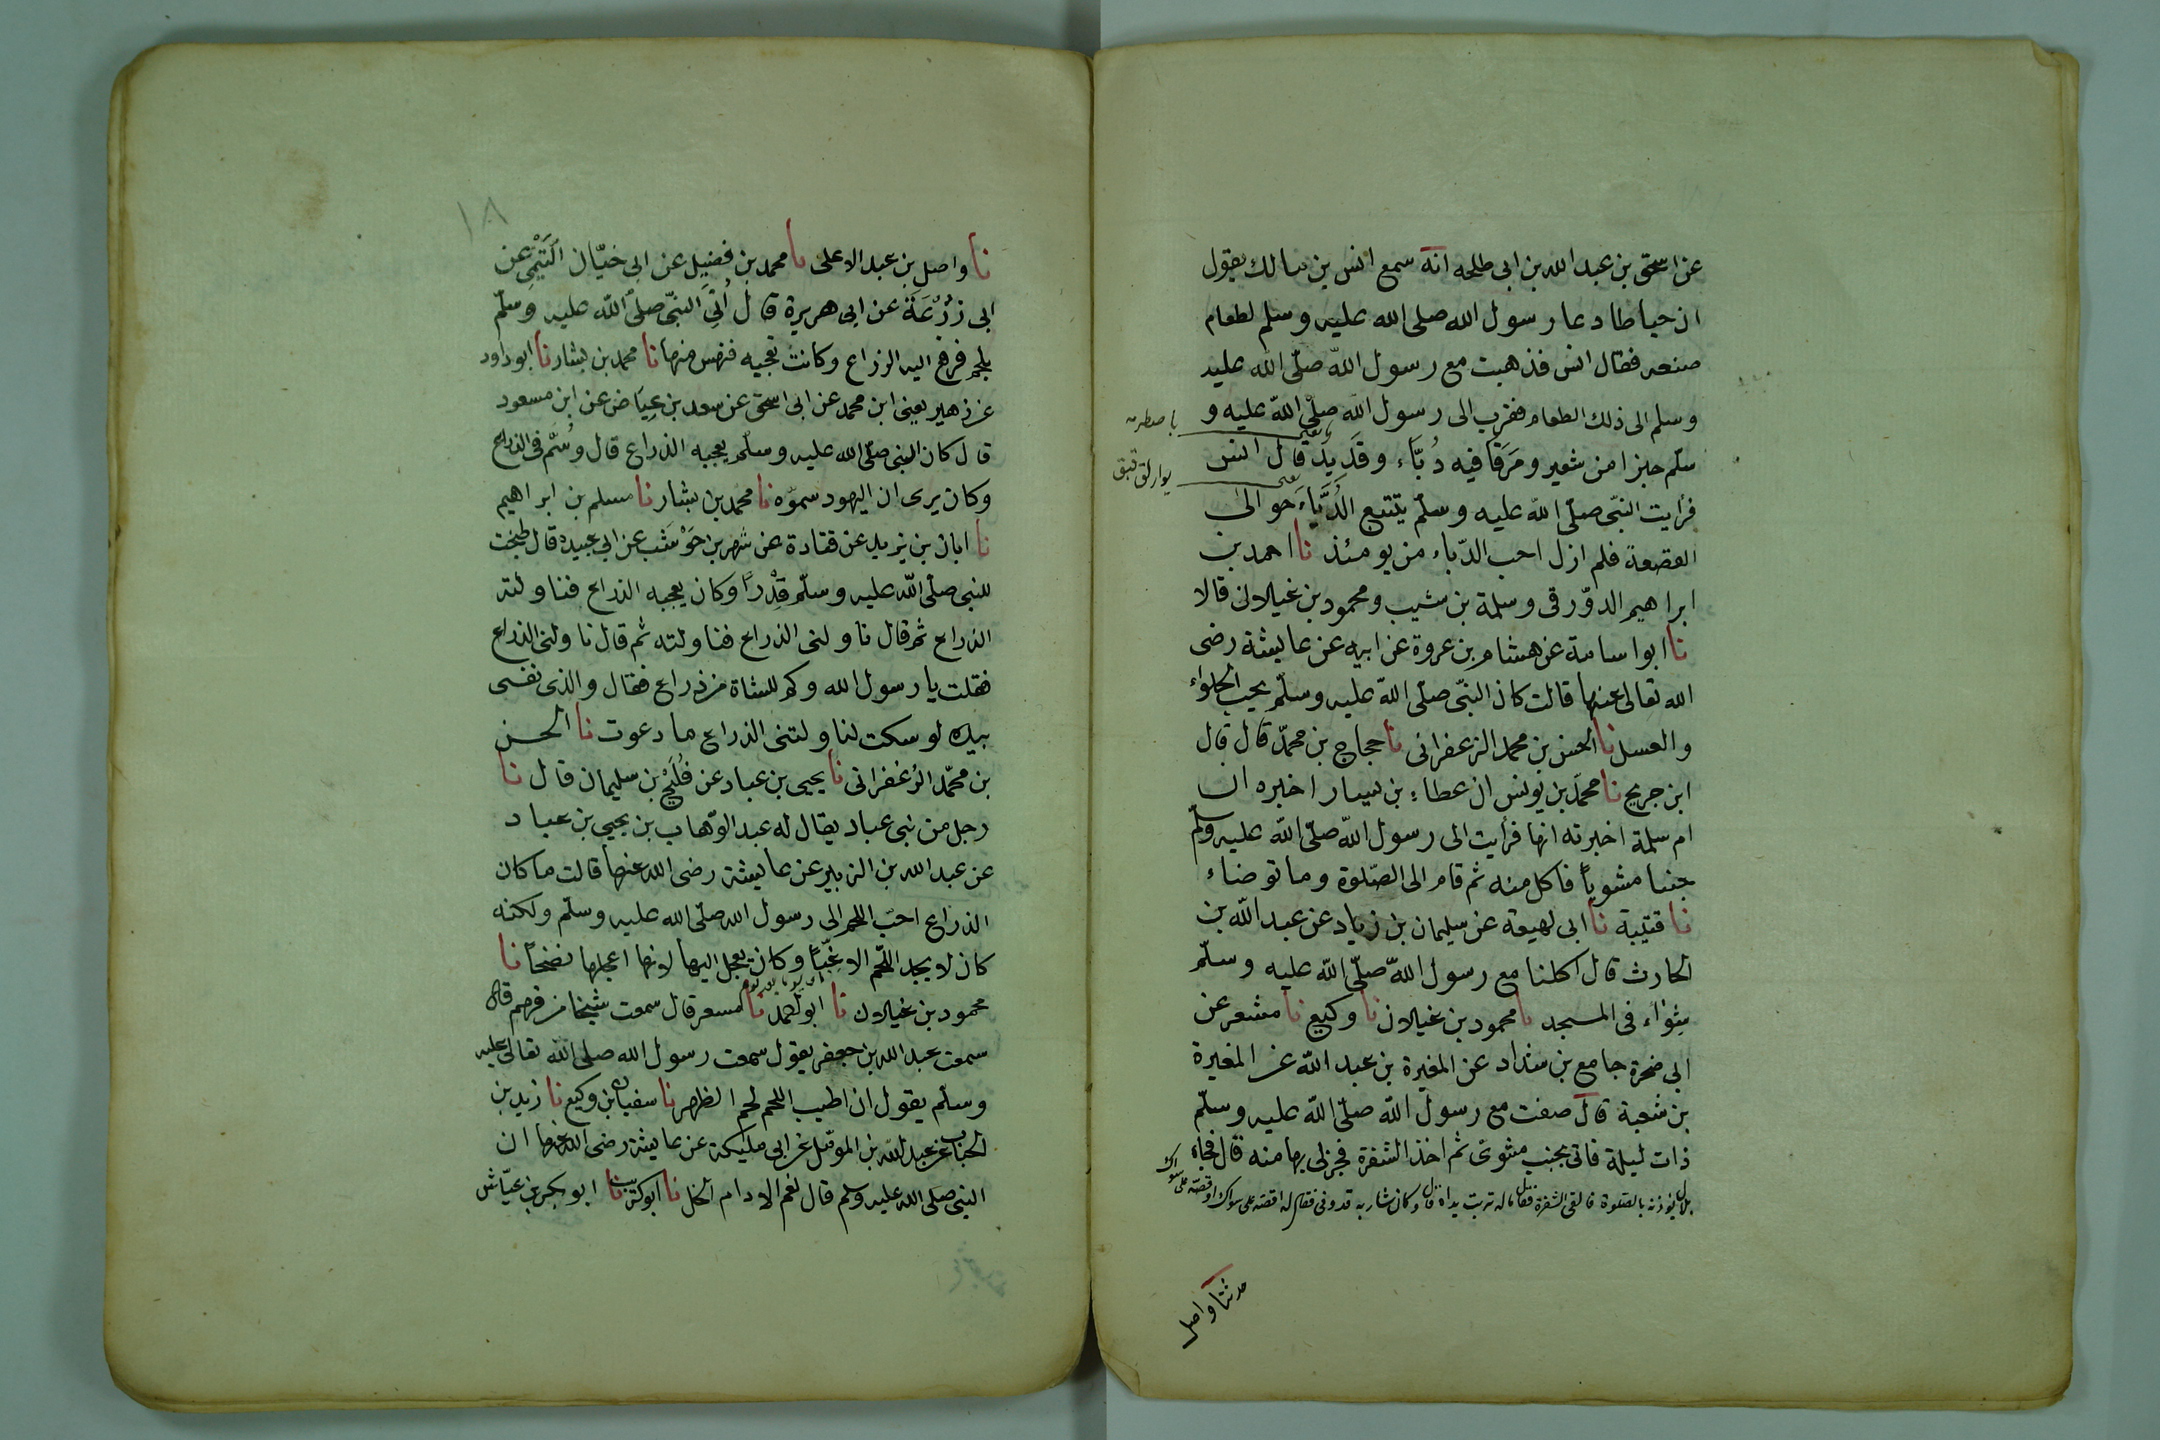 عن اسحق بن عبد الله بن ابى طلحه انه سمع انس بن مالك يقول
ان خياطا دعا رسول الله صلى الله عليه وسلم لطعام
صنعه فقال انس فذهبت مع رسول الله صلى الله عليه
وسلم الى ذلك الطعام فقرب الى رسول الله صلى الله عليه و
سلم خبزا من شعير ومَرَقا فيه دُبّاء وقَدِيدٌ قال انس
فرأيت النبى صلى الله عليه وسلم يتتبع الدُّبَّاءَ حوالى
القصعة فلم ازل احب الدّباء من يومئذ نا احمد بن
ابراهيم الدورقى وسلمة بن شبيب ومحمود بن غيلان قالا
نا ابو اسامة عن هشام بن عروة عن ابيه عن عايشة رضى
الله تعالى عنها قالت كان النبى صلى الله عليه وسلم يحب الحلواء
والعسل نا الحسن بن محمد الزعفرانى نا حجاج بن محمد قال قال
ابن جريج نا محمد بن يونس ان عطاء بن يسار اخبره ان
ام سلمة اخبرته انها قرأيت الى رسول الله صلى الله عليه وسلم
جنبا مشوياً فاكل منه ثم قام الى الصلوة وما توضاء
نا قتيبة نا ابى لهيعة عن سليمان بن زياد عن عبد الله بن
الحارث قال اكلنا مع رسول الله صلى الله عليه وسلم
شِواء فى المسجد نا محمود بن غيلان نا وكيع نا مشعر عن
ابى ضحرة جامع بن شداد عن المغيرة بن عبد الله عن المغيرة
بن شعبة قال ضفت مع رسول الله صلى الله عليه وسلم
ذات ليلة فاتى بجنب مشوى ثم اخذ الشفرة فجز لى بها منه قال فجاء
بلال يؤذنه بالصلوة فالقى الشفرة فقال ماله تربت يداه قال وكان شاربه قد وفى فقال له اقصه على سواك او قصه على سواك
حدثنا واصل
١٨
نا واصل بن عبد الاعلى نا محمد بن فضيل عن ابى حيّان التَيْمِى عن
ابى زُرْعَةَ عن ابى هريرة قال اُتِىَ النبى صلى الله عليه وسلم
بلحم فرفع اليه الزراع وكانت تعجبه فنهس منها نا محمد بن بشار نا ابو داود
عن زهير يعنى ابن محمد عن ابى اسحق عن سعد بن عِيَاض عن ابن مسعود
قال كان النبى صلى الله عليه وسلم يعجبه الذراع قال وسُمَّ فى الذراع
وكان يرى ان اليهود سموه نا محمد بن بشار نا مسلم بن ابراهيم
نا ابان بن يزيد عن قتادة عن شهر بن حَوْشَب عن ابى عبيده قال طبخت
للنبى صلى الله عليه وسلم قِدْراً وكان يعجبه الذراع فناولته
الذراع ثم قال ناولنى الذراع فناولته ثم قال ناولنى الذراع
فقلت يا رسول الله وكم للشاة من ذراع فقال والذى نفسى
بيده لو سكت لناولتنى الذراع ما دعوت نا الحسن
بن محمد الزعفرانى نا يحيى بن عباد عن فُلَيْح بن سليمان قال نا
رجل من بنى عباد يقال له عبد الوهاب بن يحيى بن عباد
عن عبد الله بن الزبير عن عايشة رضى الله عنها قالت ما كان
الذراع احب اللحم الى رسول الله صلى الله عليه وسلم ولكنه
كان لا يجد اللحم الا غِبّاً وكان يعجل اليها لانها اعجلها نضجاً نا
محمود بن غيلان نا ابو احمد نا مسعر قال سمعت شيخا من فهم قال
سمعت عبد الله بن جعفر يقول سمعت رسول الله صلى الله تعالى عليه
وسلم يقول ان اطيب اللحم لحم الظهر نا سفيان بن وكيع نا زيد بن
الحباب عن عبد الله بن الموئل عن ابى مليكة عن عايشة رضى الله عنها ان
النبى صلى الله عليه وسلم قال نعم الادام الخل نا ابو كريب نا ابو بكر بن عيّاش